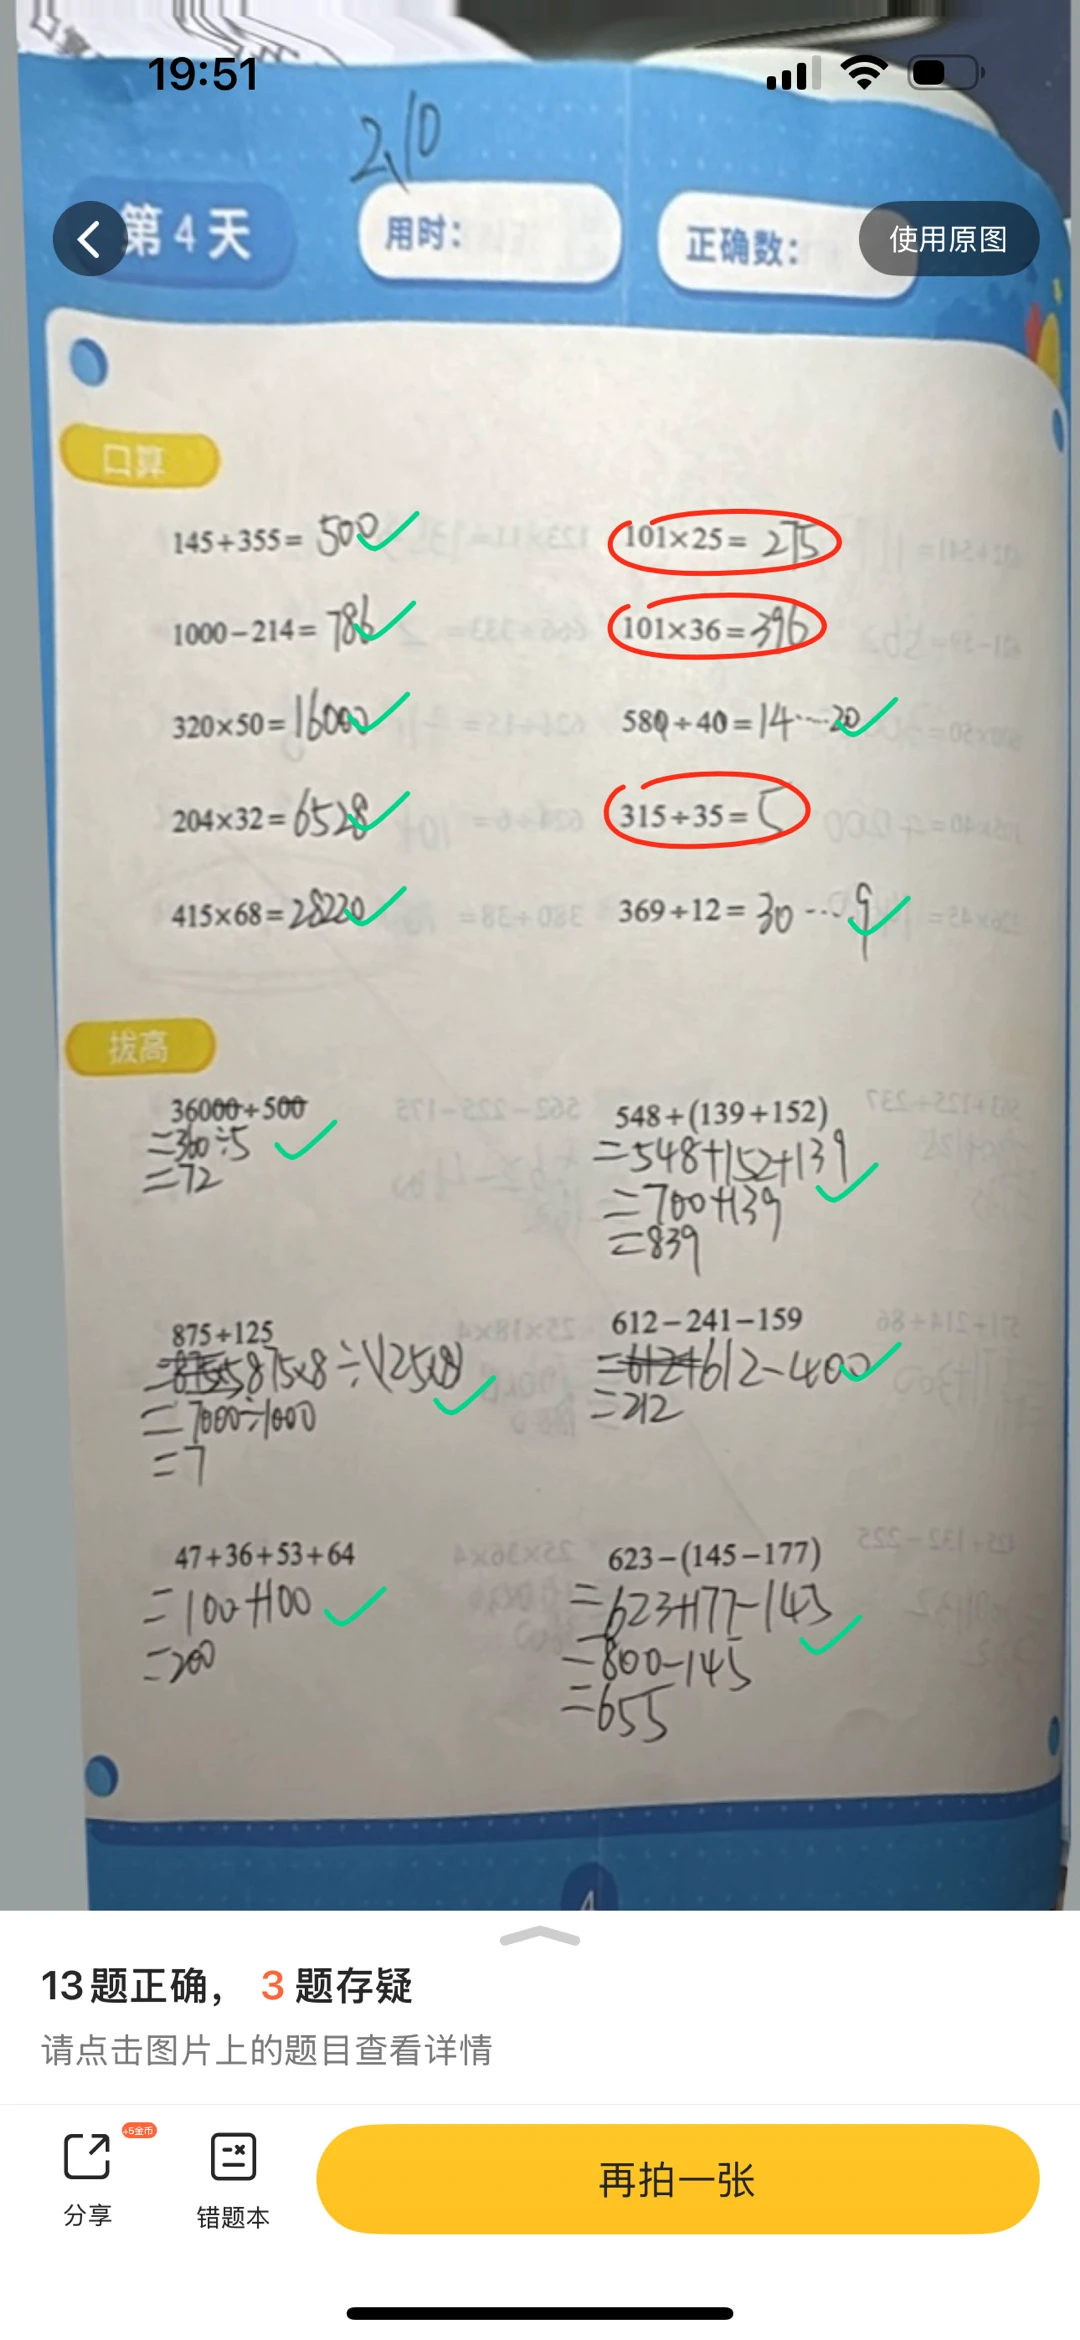 19:51
2,10
第4天
用时：
正确数：
使用原图
口算
145+355= 500
101×25= 275
1000-214= 786
101×36= 396
320×50= 16000
580÷40= 14……20
204×32= 6528
315÷35= 5
415×68= 28220
369÷12= 30……9
拔高
36000÷500
=360÷5
=72
548+(139+152)
=548+152+139
=700+139
=839
875÷125
=875×8÷(125×8)
=7000÷1000
=7
612-241-159
=612-400
=212
47+36+53+64
=100+100
=200
623-(145-177)
=623+177-145
=800-145
=655
4
13题正确， 3题存疑
请点击图片上的题目查看详情
+5金币
分享
错题本
再拍一张